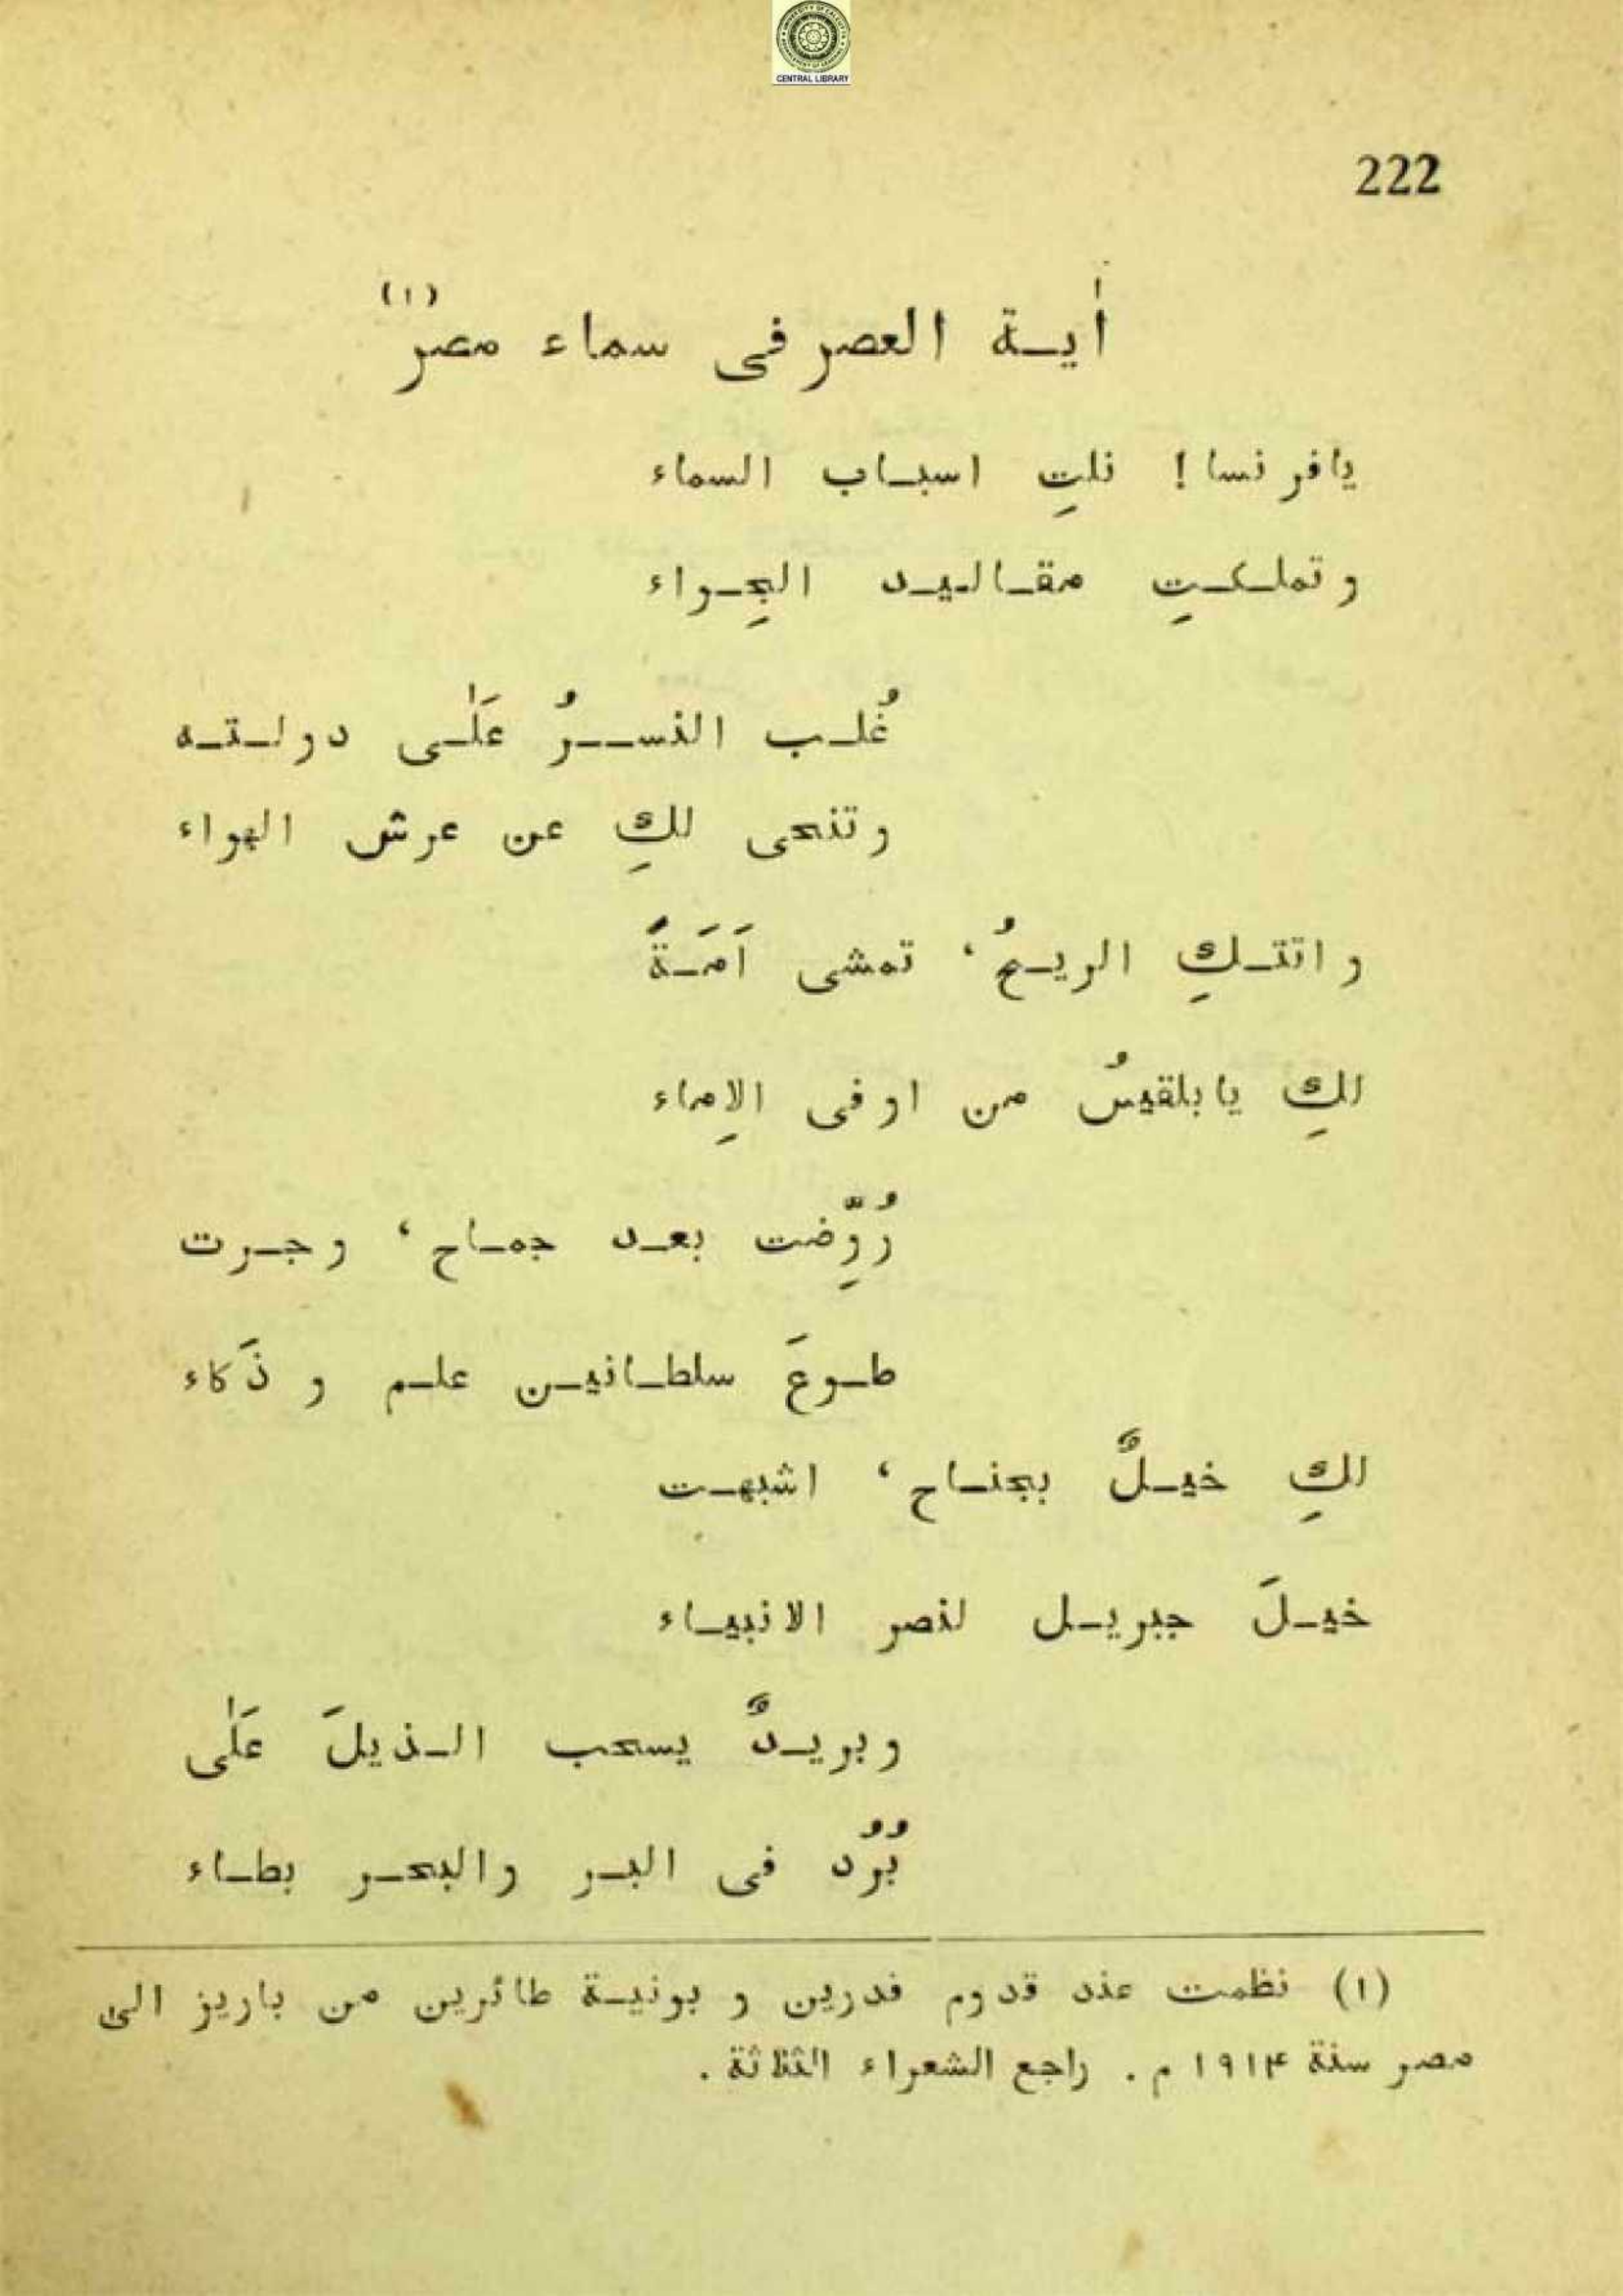 CENTRAL LIBRARY
222
اٰيـة العصر فى سماء مصر (١)
يافرنسا! نلتِ اسبـاب السماء
وتملـكـتِ مقـاليـد الجِـواء
غُلـب النســرُ عَلٰـى دولـتـه
وتنحى لكِ عن عرش الهواء
واتتـكِ الريـحُ، تمشى اَمَـةً
لكِ يابلقيسُ من اوفى الاِماء
رُوِّضت بعـد جمـاح، وجـرت
طـوعَ سلطـانيـن علـم و ذَكاء
لكِ خيـلٌ بجنـاح، اشبهـت
خيـلَ جبريـل لنصر الانبيـاء
وبريـدٌ يسحب الـذيلَ عَلٰى
بُرُد فى البـر والبحـر بطـاء
(١) نظمت عند قدوم فدرين و بونيـة طائرين من باريز الىٰ
مصر سنة ١٩١٤ م. راجع الشعراء الثلاثة.